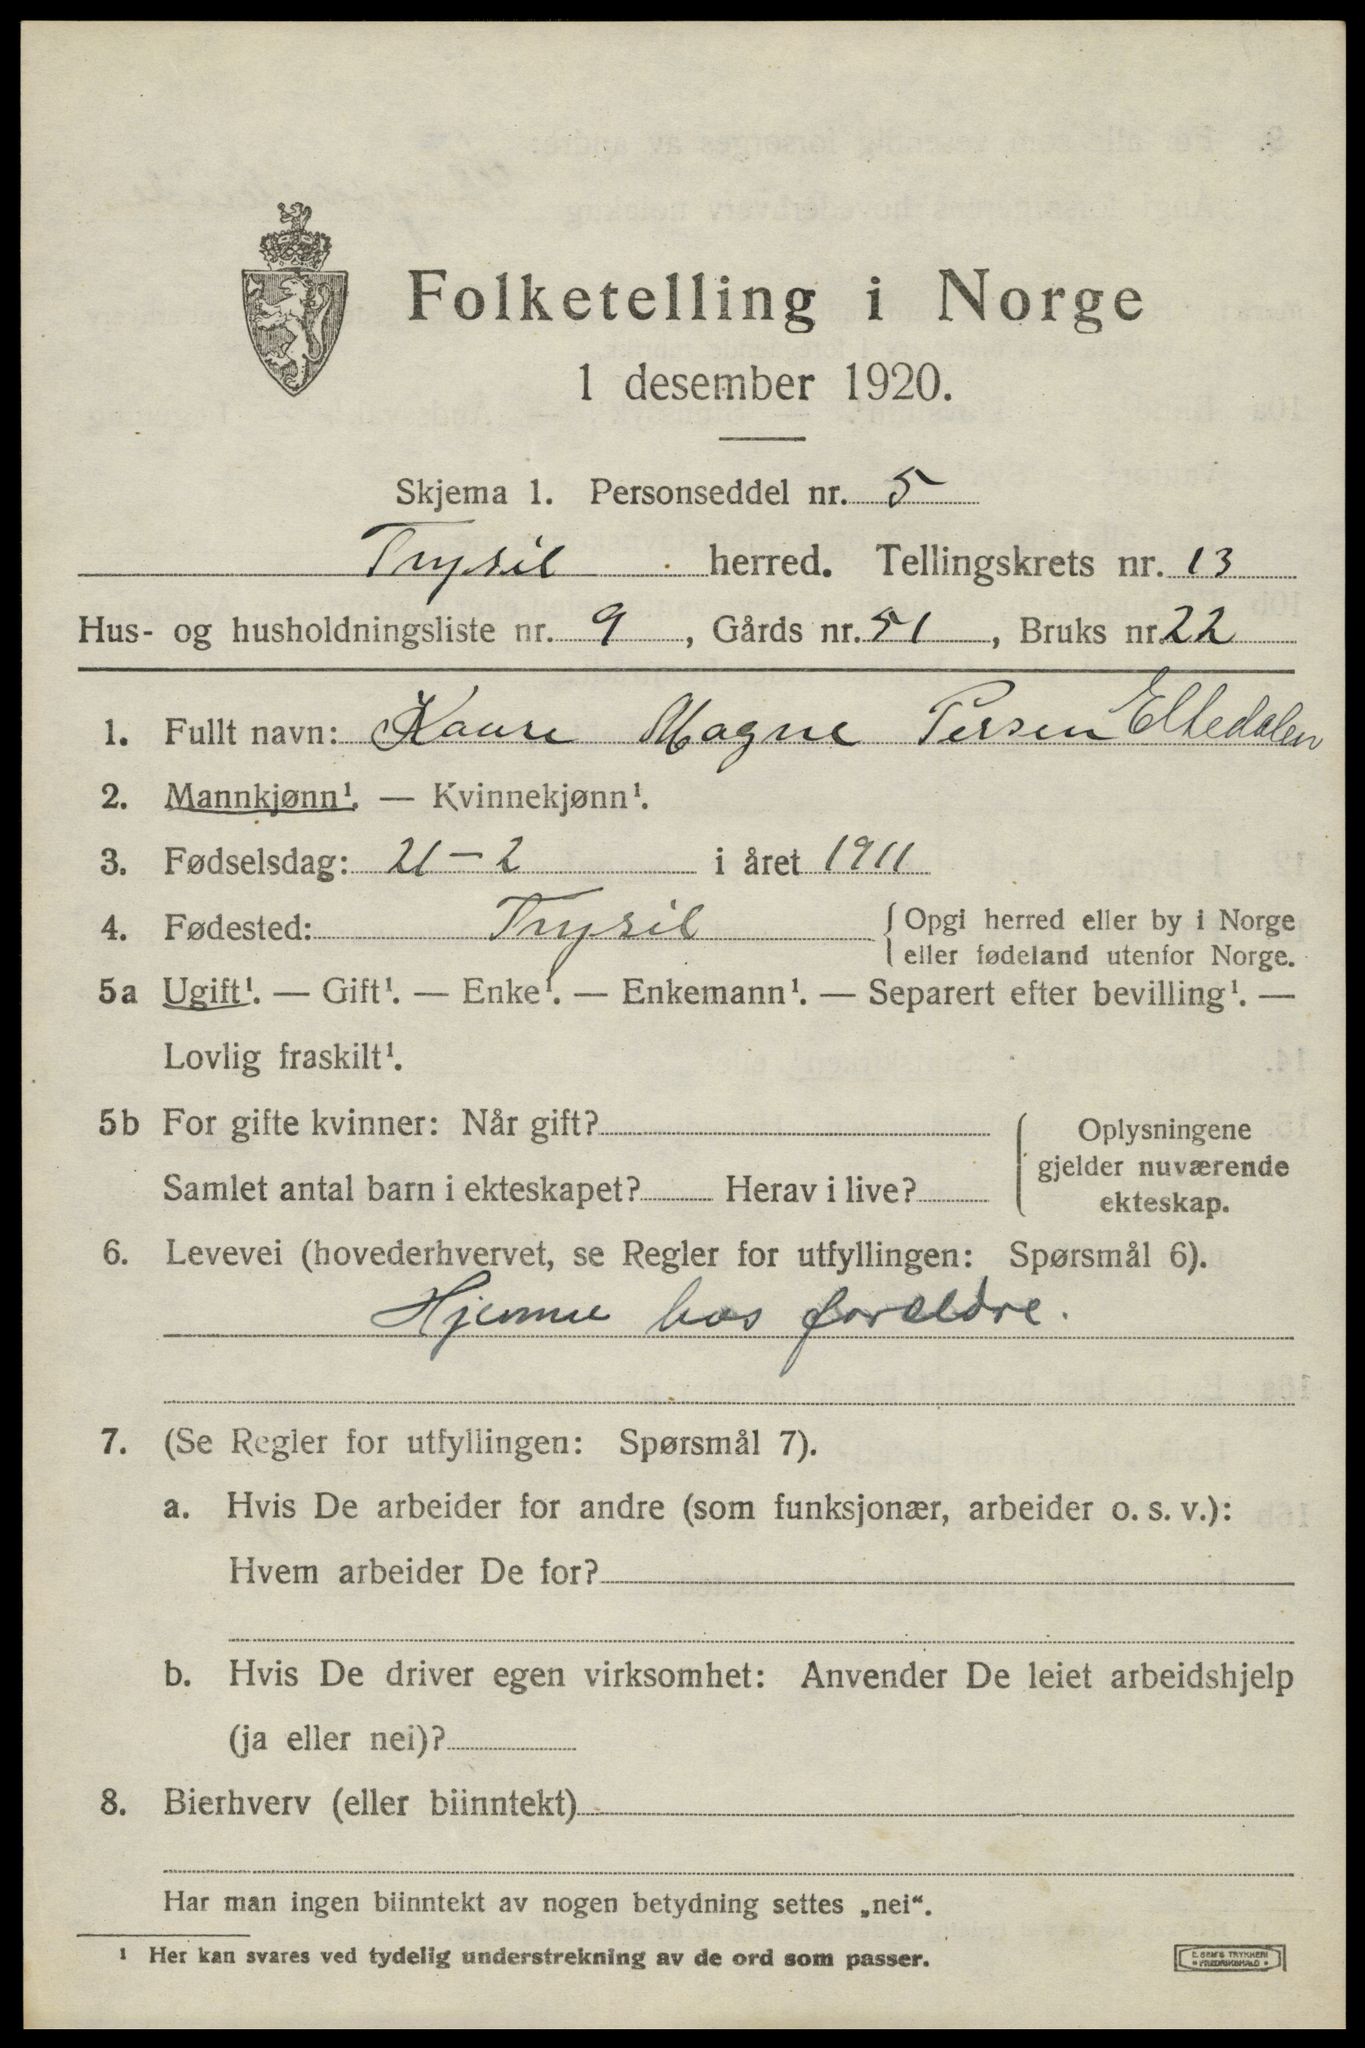 Folketelling i Norge
1 desember 1920.
Skjema 1. Personseddel nr. 5
Trysil herred. Tellingskrets nr. 13
Hus- og husholdningsliste nr. 9, Gårds nr. 51, Bruks nr. 22
1. Fullt navn: Kaare Magne Persen Eltedalen
2. Mannkjønn¹. — Kvinnekjønn¹.
3. Fødselsdag: 21-2 i året 1911
4. Fødested: Trysil { Opgi herred eller by i Norge
eller fødeland utenfor Norge.
5a Ugift¹. — Gift¹. — Enke¹. — Enkemann¹. — Separert efter bevilling¹. —
Lovlig fraskilt¹.
5b For gifte kvinner: Når gift?
Samlet antal barn i ekteskapet? Herav i live?
Oplysningene
gjelder nuværende
ekteskap.
6. Levevei (hovederhvervet, se Regler for utfyllingen: Spørsmål 6).
Hjemme hos forældre.
7. (Se Regler for utfyllingen: Spørsmål 7).
a. Hvis De arbeider for andre (som funksjonær, arbeider o. s. v.):
Hvem arbeider De for?
b. Hvis De driver egen virksomhet: Anvender De leiet arbeidshjelp
(ja eller nei)?
8. Bierhverv (eller biinntekt)
Har man ingen biinntekt av nogen betydning settes „nei“.
¹ Her kan svares ved tydelig understrekning av de ord som passer.
E. SEM'S TRYKKERI
* FREDRIKSHALD *